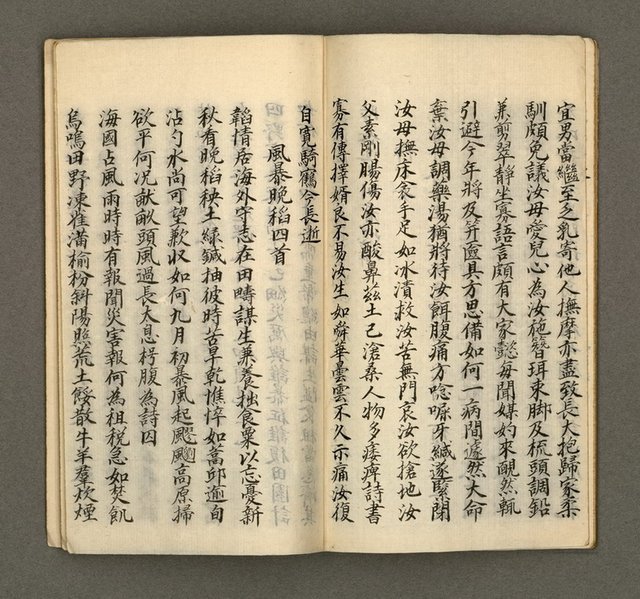 宜男當繼至乏乳寄他人撫摩亦盡致長大抱歸家柔
馴頗免議汝母愛兒心為汝施簪珥束脚及梳頭調鉛
兼剪翠靜坐寡語言頗有大家懿每聞媒妁來靦然輒
引避今年將及笄奩具方思備如何一病間遽然大命
棄汝母調藥湯猶將待汝餌腹痛方唸喉牙緘遂緊閉
汝母撫床哀手足如冰漬救汝苦無門哀汝欲搶地汝
父素剛腸傷汝亦酸鼻茲土已滄桑人物多痿痺詩書
寡有傳擇婿良不易汝生如舜華曇雲不久亦痛汝復
自寬騎鶴今長逝
風暴晚稻四首
韜情居海外守志在田疇謀生兼養拙食粟以忘憂新
秋看晚稻秧土綠鍼抽彼時苦旱乾憔悴如蒿邱逾旬
沾勺水尚可望歉収如何九月初暴風起颼飀高原掃
欲平何況畎畝頭風過長太息枵腹為詩囚
海國占風雨時時有報聞災害報何為租稅急如焚飢
烏鳴田野凍雀滿榆枌斜陽照荒土餒散牛羊羣炊煙